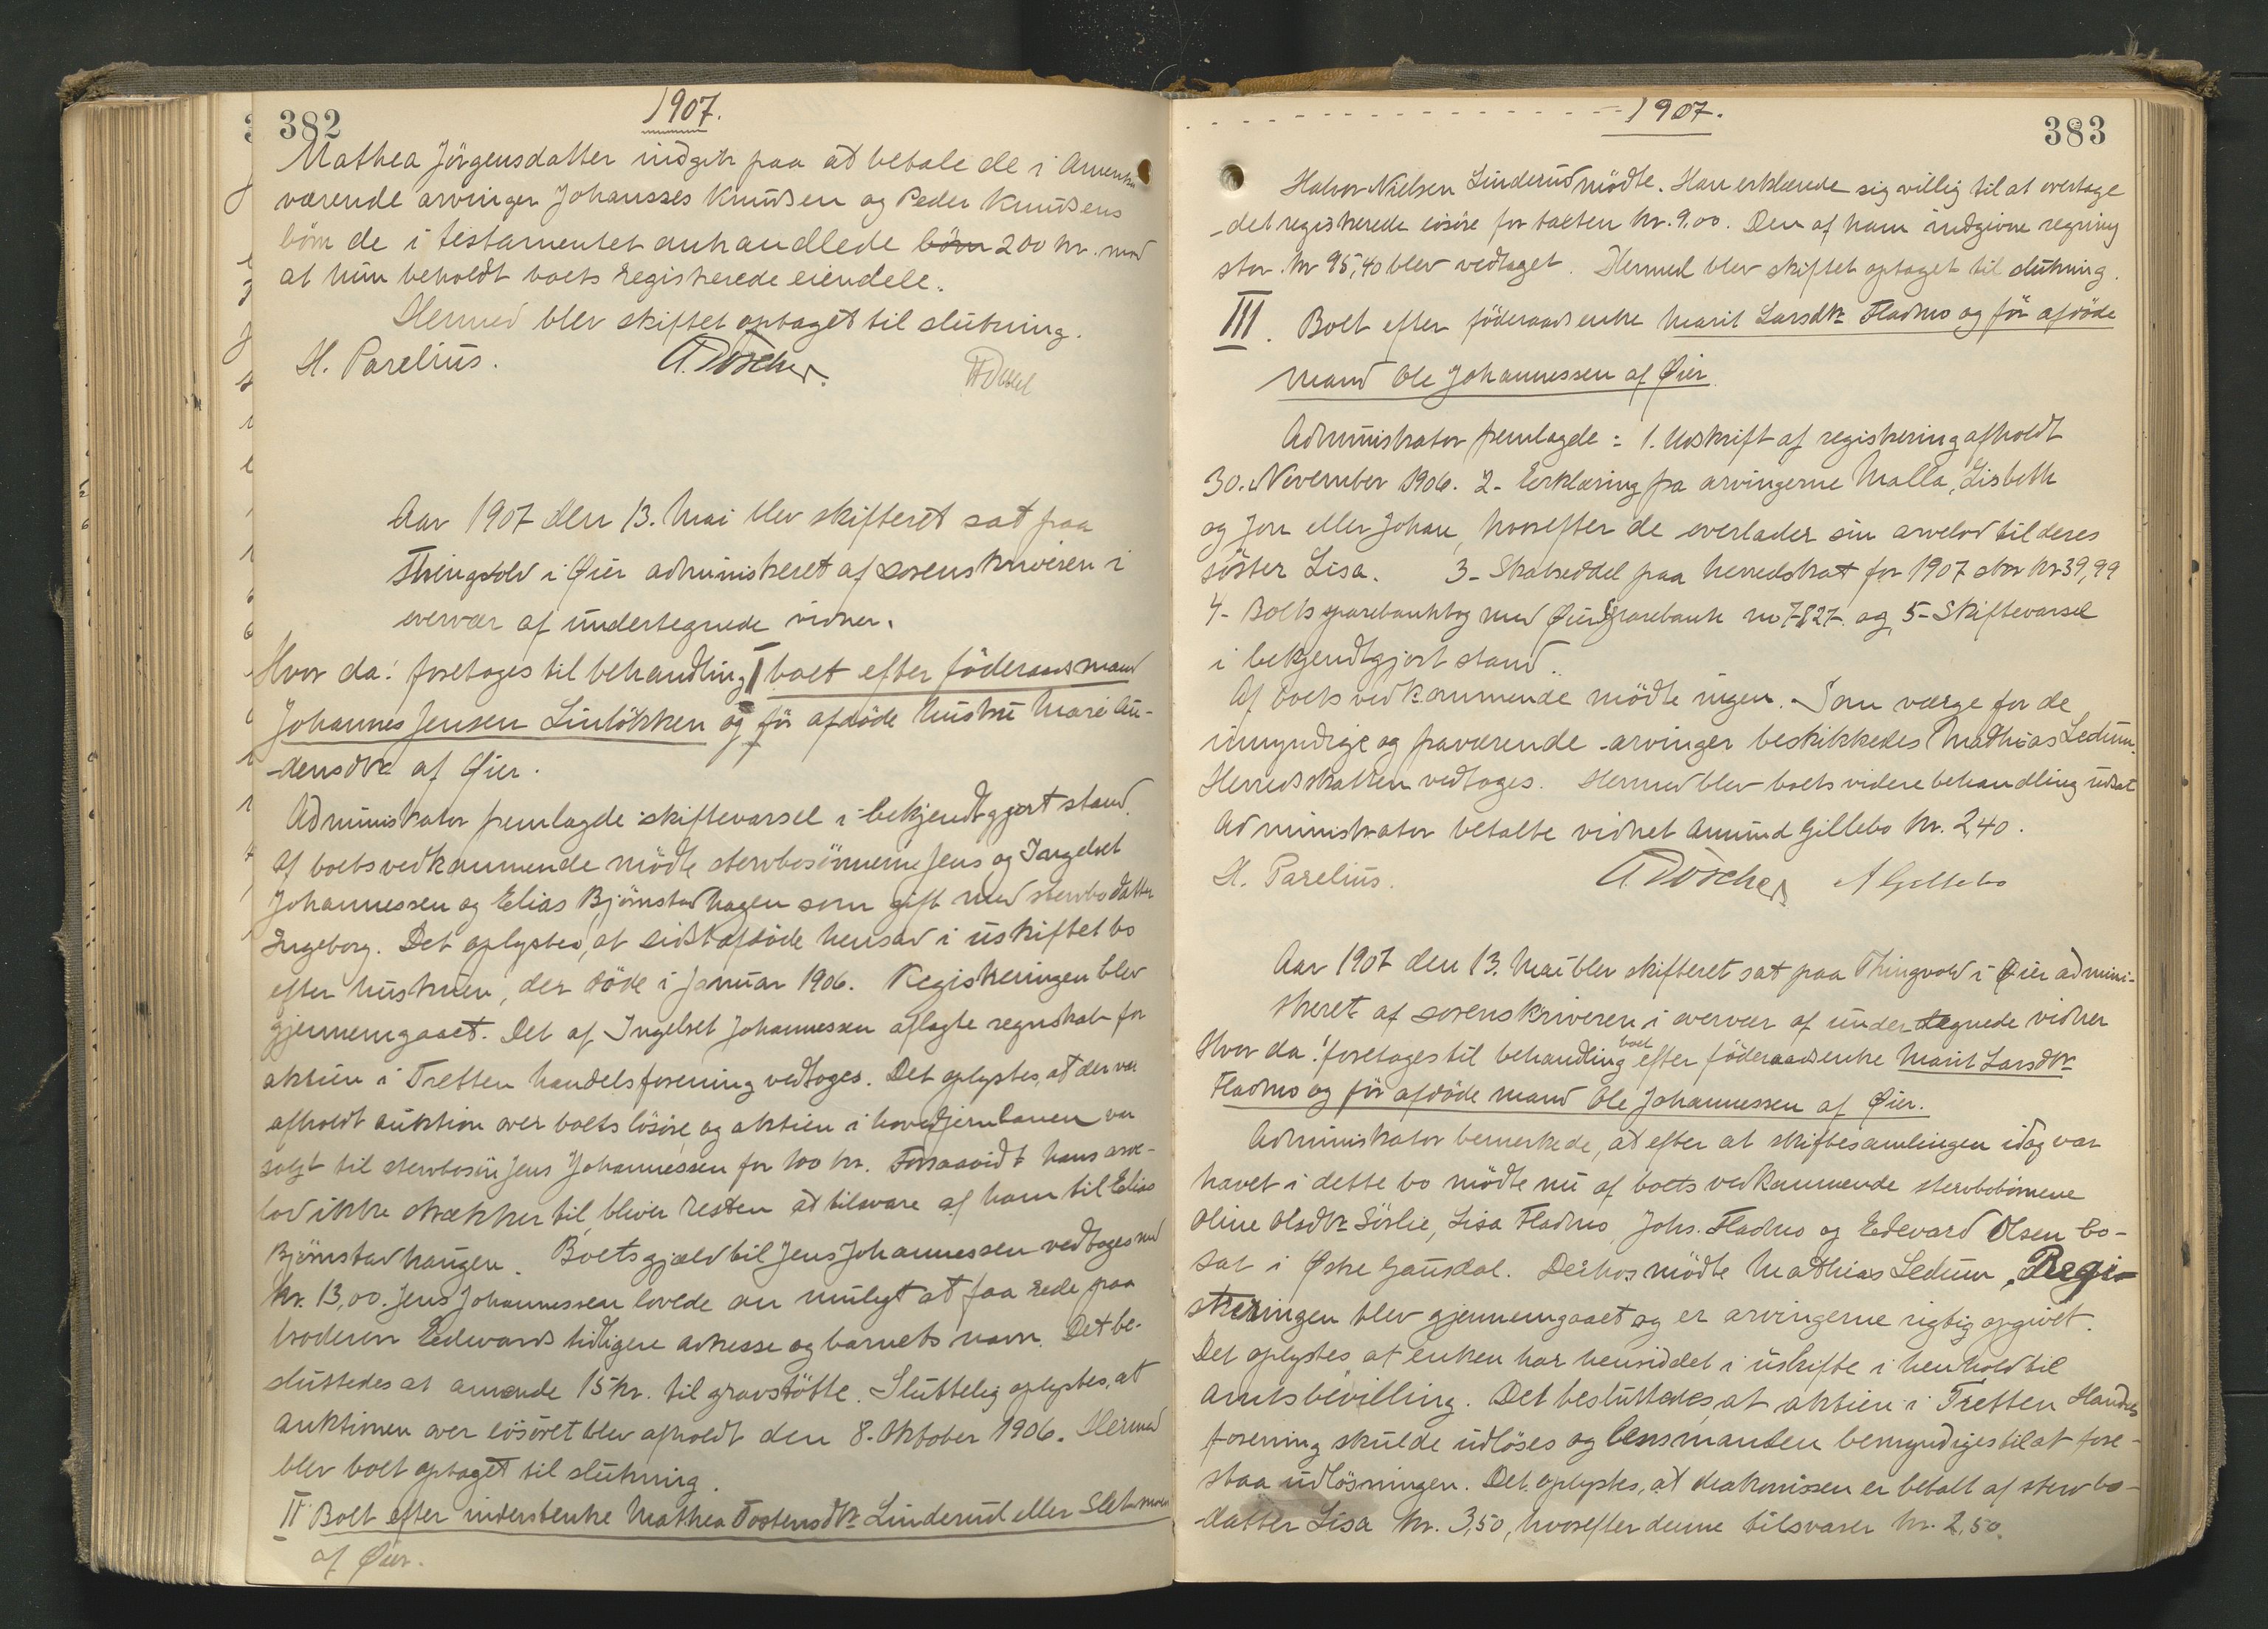 382
1907.
Mathea Jörgensdatter indgik paa at betale de i Amerika
værende arvinger Johannes Knudsen og Peder Knudsens
börn de i testamentet anhandlede börn 200 kr. mod
at hun beholdt boets registrerede eiendele.
Hermed blev skiftet optaget til slutning.
H. Parelius. A. Döscher.
Aar 1907 den 13. Mai blev skifteret sat paa
Thingvold i Øier administreret af sorenskriveren i
overvær af undertegnede vidner.
Hvor da: foretoges til behandling I boet efter föderaadsmand
Johannes Jensen Linlökken og för afdöde hustru Mari Au-
densdtr af Øier.
Administrator fremlagde skiftevarsel i bekjendtgjort stand.
Af boets vedkommende mödte stervbosönnerne Jens og Ingelset
Johannessen og Elias Björnstadhagen som gift med stervbodatter
Ingeborg. Det oplystes, at sidstafdöde hensad i uskiftet bo
efter hustruen, der döde i Januar 1906. Registreringen blev
gjennemgaaet. Det af Ingelset Johannessen aflagte regnskab for
aktien i Tretten handelsforening vedtoges. Det oplystes, at der var
afholdt auktion over boets lösöre og aktien i hovedjernbanen var
solgt til stervbosön Jens Johannessen for 100 kr. Forsaavidt hans arve-
lod ikke strækker til, bliver resten at tilsvare af ham til Elias
Björnstadhaugen. Boets gjæld til Jens Johannessen vedtoges med
kr. 13,00. Jens Johannessen lovede om muligt at faa rede paa
broderen Eedvards tidligere adresse og barnets navn. Det be-
sluttedes at anvende 15 kr. til gravstötte. Sluttelig oplystes, at
auktionen over lösöret blev afholdt den 8. Oktober 1906. Hermed
blev boet optaget til slutning.
II Boet efter inderstenke Mathea Tostensdtr Linderud eller Sletmoen
af Øier.
1907.
383
Halvor Nielsen Linderud mödte. Han erklærede sig villig til at overtage
det registrerede lösöre for taxten kr. 9.00. Den af ham indgivne regning
stor kr 95,40 blev vedtaget. Hermed blev skiftet optaget til slutning.
III. Boet efter föderaadsenke Marit Larsdtr Fladmo og för afdöde
mand Ole Johannessen af Øier.
Administrator fremlagde: 1. Udskrift af registrering afholdt
30. November 1906. 2- Erklæring fra arvingerne Malla, Lisbeth
og Jon eller Johan, hvorefter de overlader sin arvelod til deres
söster Lisa. 3- Skatseddel paa herredskat for 1907 stor kr 39,99
4- Boets sparebankbog med Øier Sparebank no 7827. og 5- Skiftevarsel
i bekjendtgjort stand.
Af boets vedkommende mödte ingen. Som værge for de
umyndige og fraværende arvinger beskikkedes Mathias Ledum.
Herredsskatten vedtoges. Hermed blev boets videre behandling udsat
Administrator betalte vidnet Amund Gillebo kr. 2,40.
H. Parelius. A. Döscher A Gillebo
Aar 1907 den 13. Mai blev skifteret sat paa Thingvold i Øier admini-
streret af sorenskriveren i overvær af undertegnede vidner
Hvor da: foretoges til behandling boet efter föderaadsenke Marit Larsdtr
Fladmo og för afdöde mand Ole Johannessen af Øier.
Administrator bemerkede, at efter at skiftesamlingen idag var
hævet i dette bo mödte nu af boets vedkommende stervbobörnene
Oline Olsdtr Sörlie, Lisa Fladmo, Johs. Fladmo og Eedevard Olsen bo-
sat i Østre Gausdal. Derhos mödte Mathias Ledum. Regi-
streringen blev gjennemgaaet og er arvingerne rigtig opgivet.
Det oplystes at enken har hensiddet i uskifte i henhold til
amtsbevilling. Det besluttedes, at aktien i Tretten Handels
forening skulde udlöses og lensmanden bemyndiges til at fore-
staa udlösningen. Det oplystes, at diakonissen er betalt af stervbo-
datter Lisa kr. 3,50, hvorefter denne tilsvarer kr. 2,50.